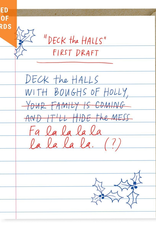 ED
OF
RDS
"DECK the HALLS"
FIRST DRAFT
DECK the HALLS
WITH BOUGHS OF HOLLY,
YOUR FAMILY IS COMING
AND IT'LL HIDE the MESS
Fa la la la la
la la la la. (?)